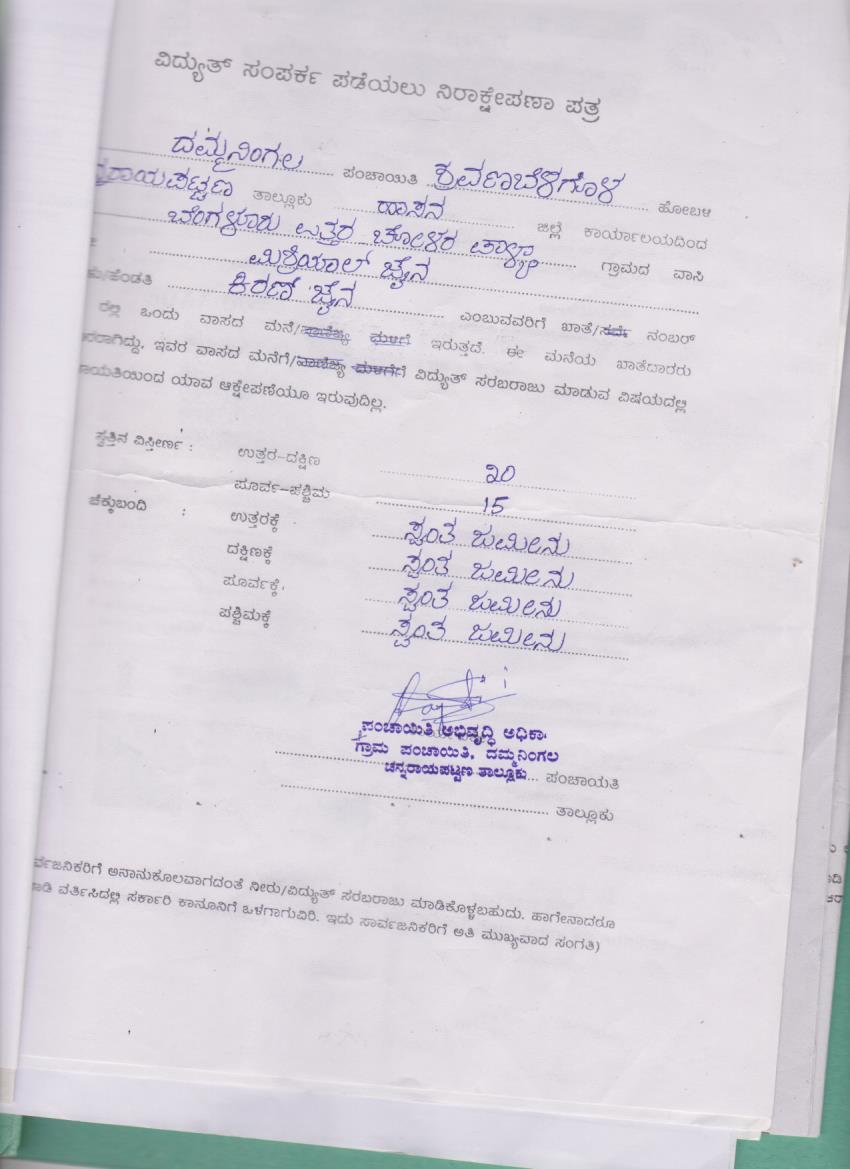 ವಿದ್ಯುತ್ ಸಂಪರ್ಕ ಪಡೆಯಲು ನಿರಾಕ್ಷೇಪಣಾ ಪತ್ರ
ದಮ್ಮನಿಂಗಲ ಪಂಚಾಯಿತಿ ಶ್ರವಣಬೆಳಗೊಳ ಹೋಬಳಿ
ರಾಯಪಟ್ಟಣ ತಾಲ್ಲೂಕು ಹಾಸನ ಜಿಲ್ಲೆ ಕಾರ್ಯಾಲಯದಿಂದ
ಬೆಂಗಳೂರು ಉತ್ತರ ಗ್ರಾಮದ ವಾಸಿ
ಜೈನ
ಕು/ಹೆಂಡತಿ ಕಿರಣ್ ಜೈನ ಎಂಬುವವರಿಗೆ ಖಾತೆ/ಸರ್ವೆ ನಂಬರ್
ರಲ್ಲಿ ಒಂದು ವಾಸದ ಮನೆ/ವಾಣಿಜ್ಯ ಮಳಿಗೆ ಇರುತ್ತದೆ. ಈ ಮನೆಯ ಖಾತೆದಾರರು
ದಾರರಾಗಿದ್ದು, ಇವರ ವಾಸದ ಮನೆಗೆ/ವಾಣಿಜ್ಯ ಮಳಿಗೆಗೆ ವಿದ್ಯುತ್ ಸರಬರಾಜು ಮಾಡುವ ವಿಷಯದಲ್ಲಿ
ಾಯತಿಯಿಂದ ಯಾವ ಆಕ್ಷೇಪಣೆಯೂ ಇರುವುದಿಲ್ಲ.
ಸ್ವತ್ತಿನ ವಿಸ್ತೀರ್ಣ : ಉತ್ತರ-ದಕ್ಷಿಣ 20
ಪೂರ್ವ-ಪಶ್ಚಿಮ 15
ಚೆಕ್ಕುಬಂದಿ : ಉತ್ತರಕ್ಕೆ ಸ್ವಂತ ಜಮೀನು
ದಕ್ಷಿಣಕ್ಕೆ ಸ್ವಂತ ಜಮೀನು
ಪೂರ್ವಕ್ಕೆ ಸ್ವಂತ ಜಮೀನು
ಪಶ್ಚಿಮಕ್ಕೆ ಸ್ವಂತ ಜಮೀನು
ಪಂಚಾಯಿತಿ ಅಭಿವೃದ್ಧಿ ಅಧಿಕಾ
ಗ್ರಾಮ ಪಂಚಾಯಿತಿ, ದಮ್ಮನಿಂಗಲ
ಚನ್ನರಾಯಪಟ್ಟಣ ತಾಲ್ಲೂಕು ಪಂಚಾಯತಿ
ತಾಲ್ಲೂಕು
ರ್ವಜನಿಕರಿಗೆ ಅನಾನುಕೂಲವಾಗದಂತೆ ನೀರು/ವಿದ್ಯುತ್ ಸರಬರಾಜು ಮಾಡಿಕೊಳ್ಳಬಹುದು. ಹಾಗೇನಾದರೂ
ಾಡಿ ವರ್ತಿಸಿದಲ್ಲಿ ಸರ್ಕಾರಿ ಕಾನೂನಿಗೆ ಒಳಗಾಗುವಿರಿ. ಇದು ಸಾರ್ವಜನಿಕರಿಗೆ ಅತಿ ಮುಖ್ಯವಾದ ಸಂಗತಿ)